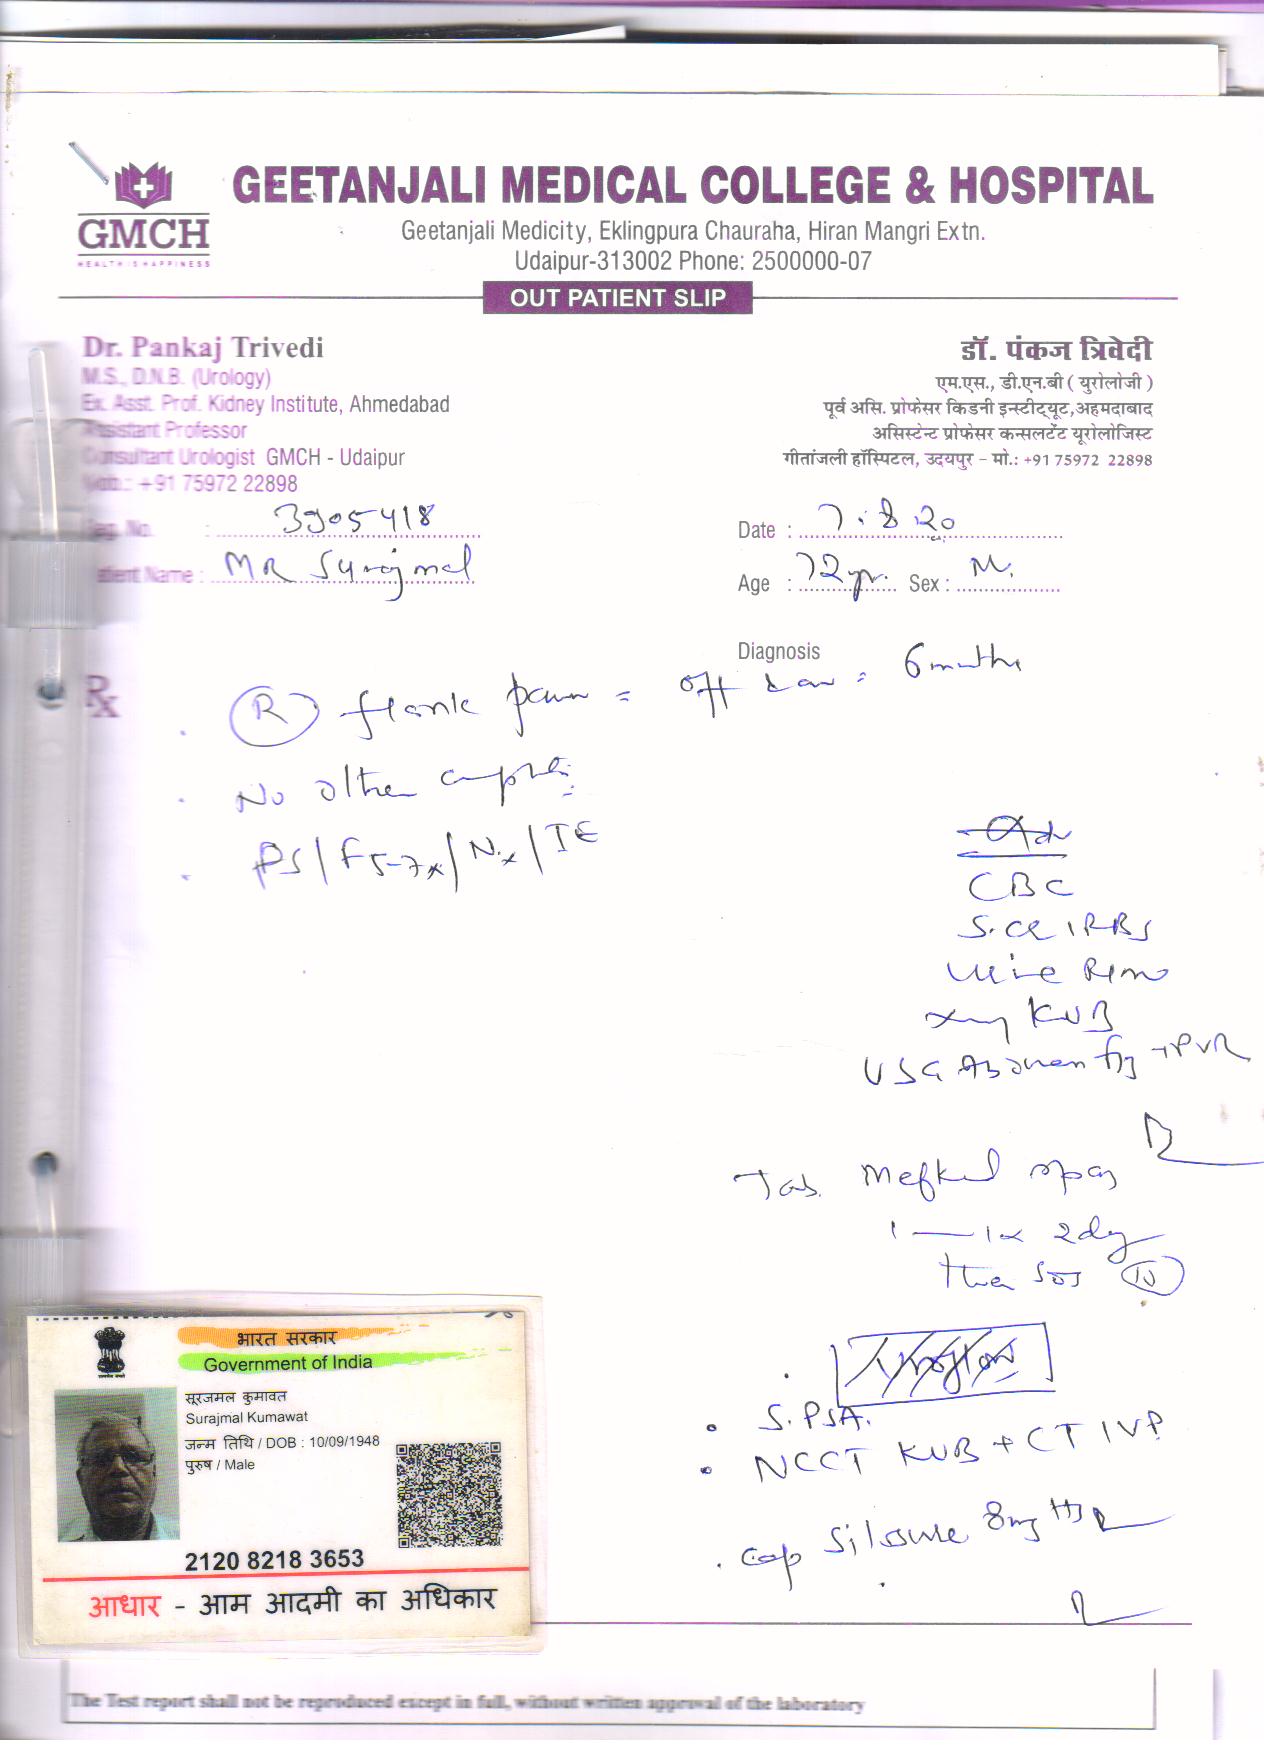 GMCH
HEALTH IS HAPPINESS
GEETANJALI MEDICAL COLLEGE & HOSPITAL
Geetanjali Medicity, Eklingpura Chauraha, Hiran Mangri Extn.
Udaipur-313002 Phone: 2500000-07
OUT PATIENT SLIP
Dr. Pankaj Trivedi
M.S., D.N.B. (Urology)
Ex. Asst. Prof. Kidney Institute, Ahmedabad
Assistant Professor
Consultant Urologist GMCH - Udaipur
Mob.: +91 75972 22898
डॉ. पंकज त्रिवेदी
एम.एस., डी.एन.बी ( युरोलोजी )
पूर्व असि. प्रोफेसर किडनी इन्स्टीट्यूट,अहमदाबाद
असिस्टेन्ट प्रोफेसर कन्सलटेंट यूरोलोजिस्ट
गीतांजली हॉस्पिटल, उदयपुर – मो.: +91 75972 22898
Reg. No. : 3905418
Date : 7.8.20
Patient Name : MR Surajmal
Age : 72 yr. Sex : M.
Diagnosis
Rx
R flank pain = off & on = 6 months
No other
PS/F5-7x/Nx/TE
Adv
CBC
S.CR, RBS
Urine R/m
Xray KUB
USG Abdomen + PVR
Tab. Meftal spas
1 — 1 x 2 day
then SOS 10
S. PSA.
NCCT KUB + CT IVP
Cap 8mg HS
भारत सरकार
Government of India
सूरजमल कुमावत
Surajmal Kumawat
जन्म तिथि / DOB : 10/09/1948
पुरुष / Male
2120 8218 3653
आधार - आम आदमी का अधिकार
The Test report shall not be reproduced except in full, without written approval of the laboratory